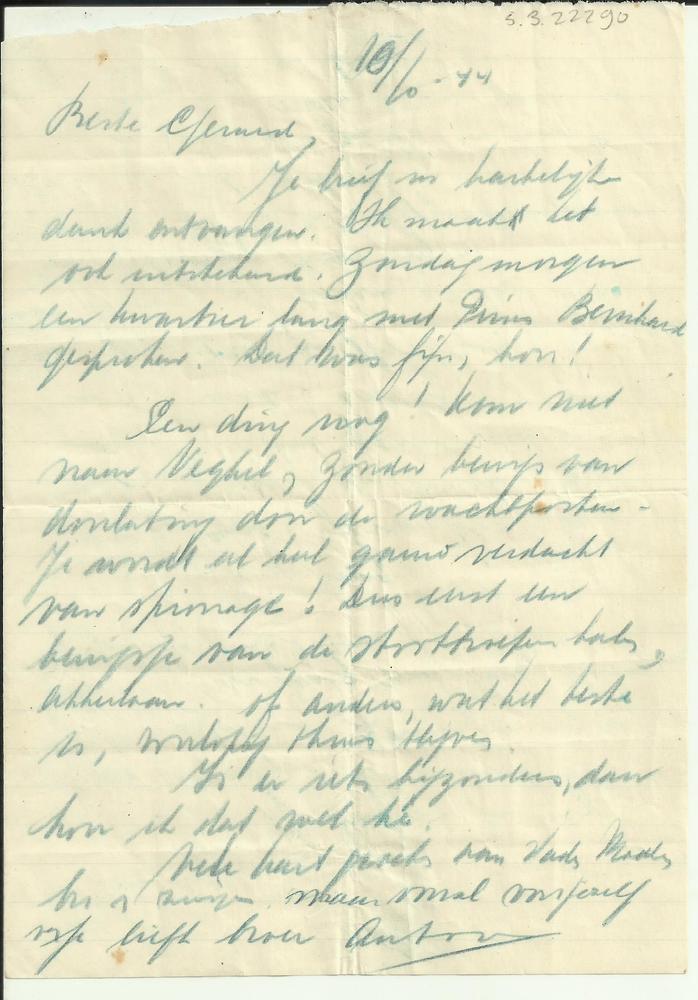 S.3.22290
10/10-44
Beste Gerard,
Je brief in hartelijke
dank ontvangen. Ik maak het
ook uitstekend. Zondagmorgen
een kwartier lang met Prins Bernhard
gesproken. Dat was fijn, hoor!
Een ding nog! Kom niet
naar Veghel, zonder bewijs van
doorlating door de wachtposten.
Je wordt al heel gauw verdacht
van spionage! Dus eerst een
bewijsje van de stoottroepen
of anders, wat het beste
is, voorlopig thuis blijven.
Is er iets bijzonders, dan
hoor ik dat wel hè.
Vele hart groeten van Vader Moeder
br. zusjes maar vooral van jezelf
liefh broer Anton